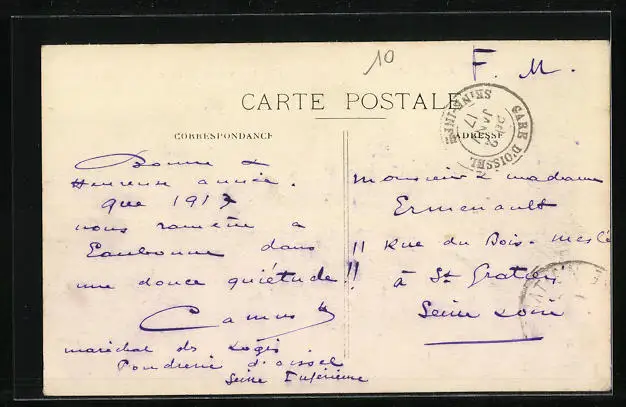 10
F. M.
CARTE POSTALE
CORRESPONDANCE
ADRESSE
GARE D'OISSEL
SEINE-INFRE
JANV
17
Bonne &
Heureuse année.
que 1917
nous ramène à
Eaubonne dans
une douce quiétude!!
Camus
maréchal des Logis
Poudrerie d'oissel
Seine Inférieure
Monsieur & madame
11 Rue du Bois-
à St Gratien
Seine